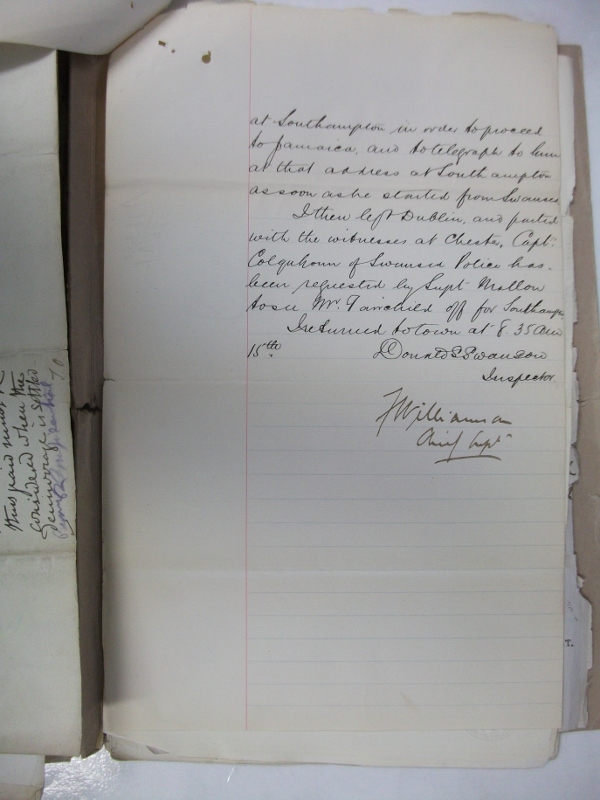 at Southampton in order to proceed
to Jamaica, and to telegraph to him
at that address at Southampton
as soon as he started from Swansea
I then left Dublin, and parted
with the witnesses at Chester, Capt.
Colquhoun of Swansea Police has
been requested by Supt Mallon
to see Mr. Fairchild off for Southampn
I returned to town at 8.35 am
15th. Donald S Swanson
Inspector.
FWilliamson
Chief Supt
this paid must
considered when the
demurrage is settled